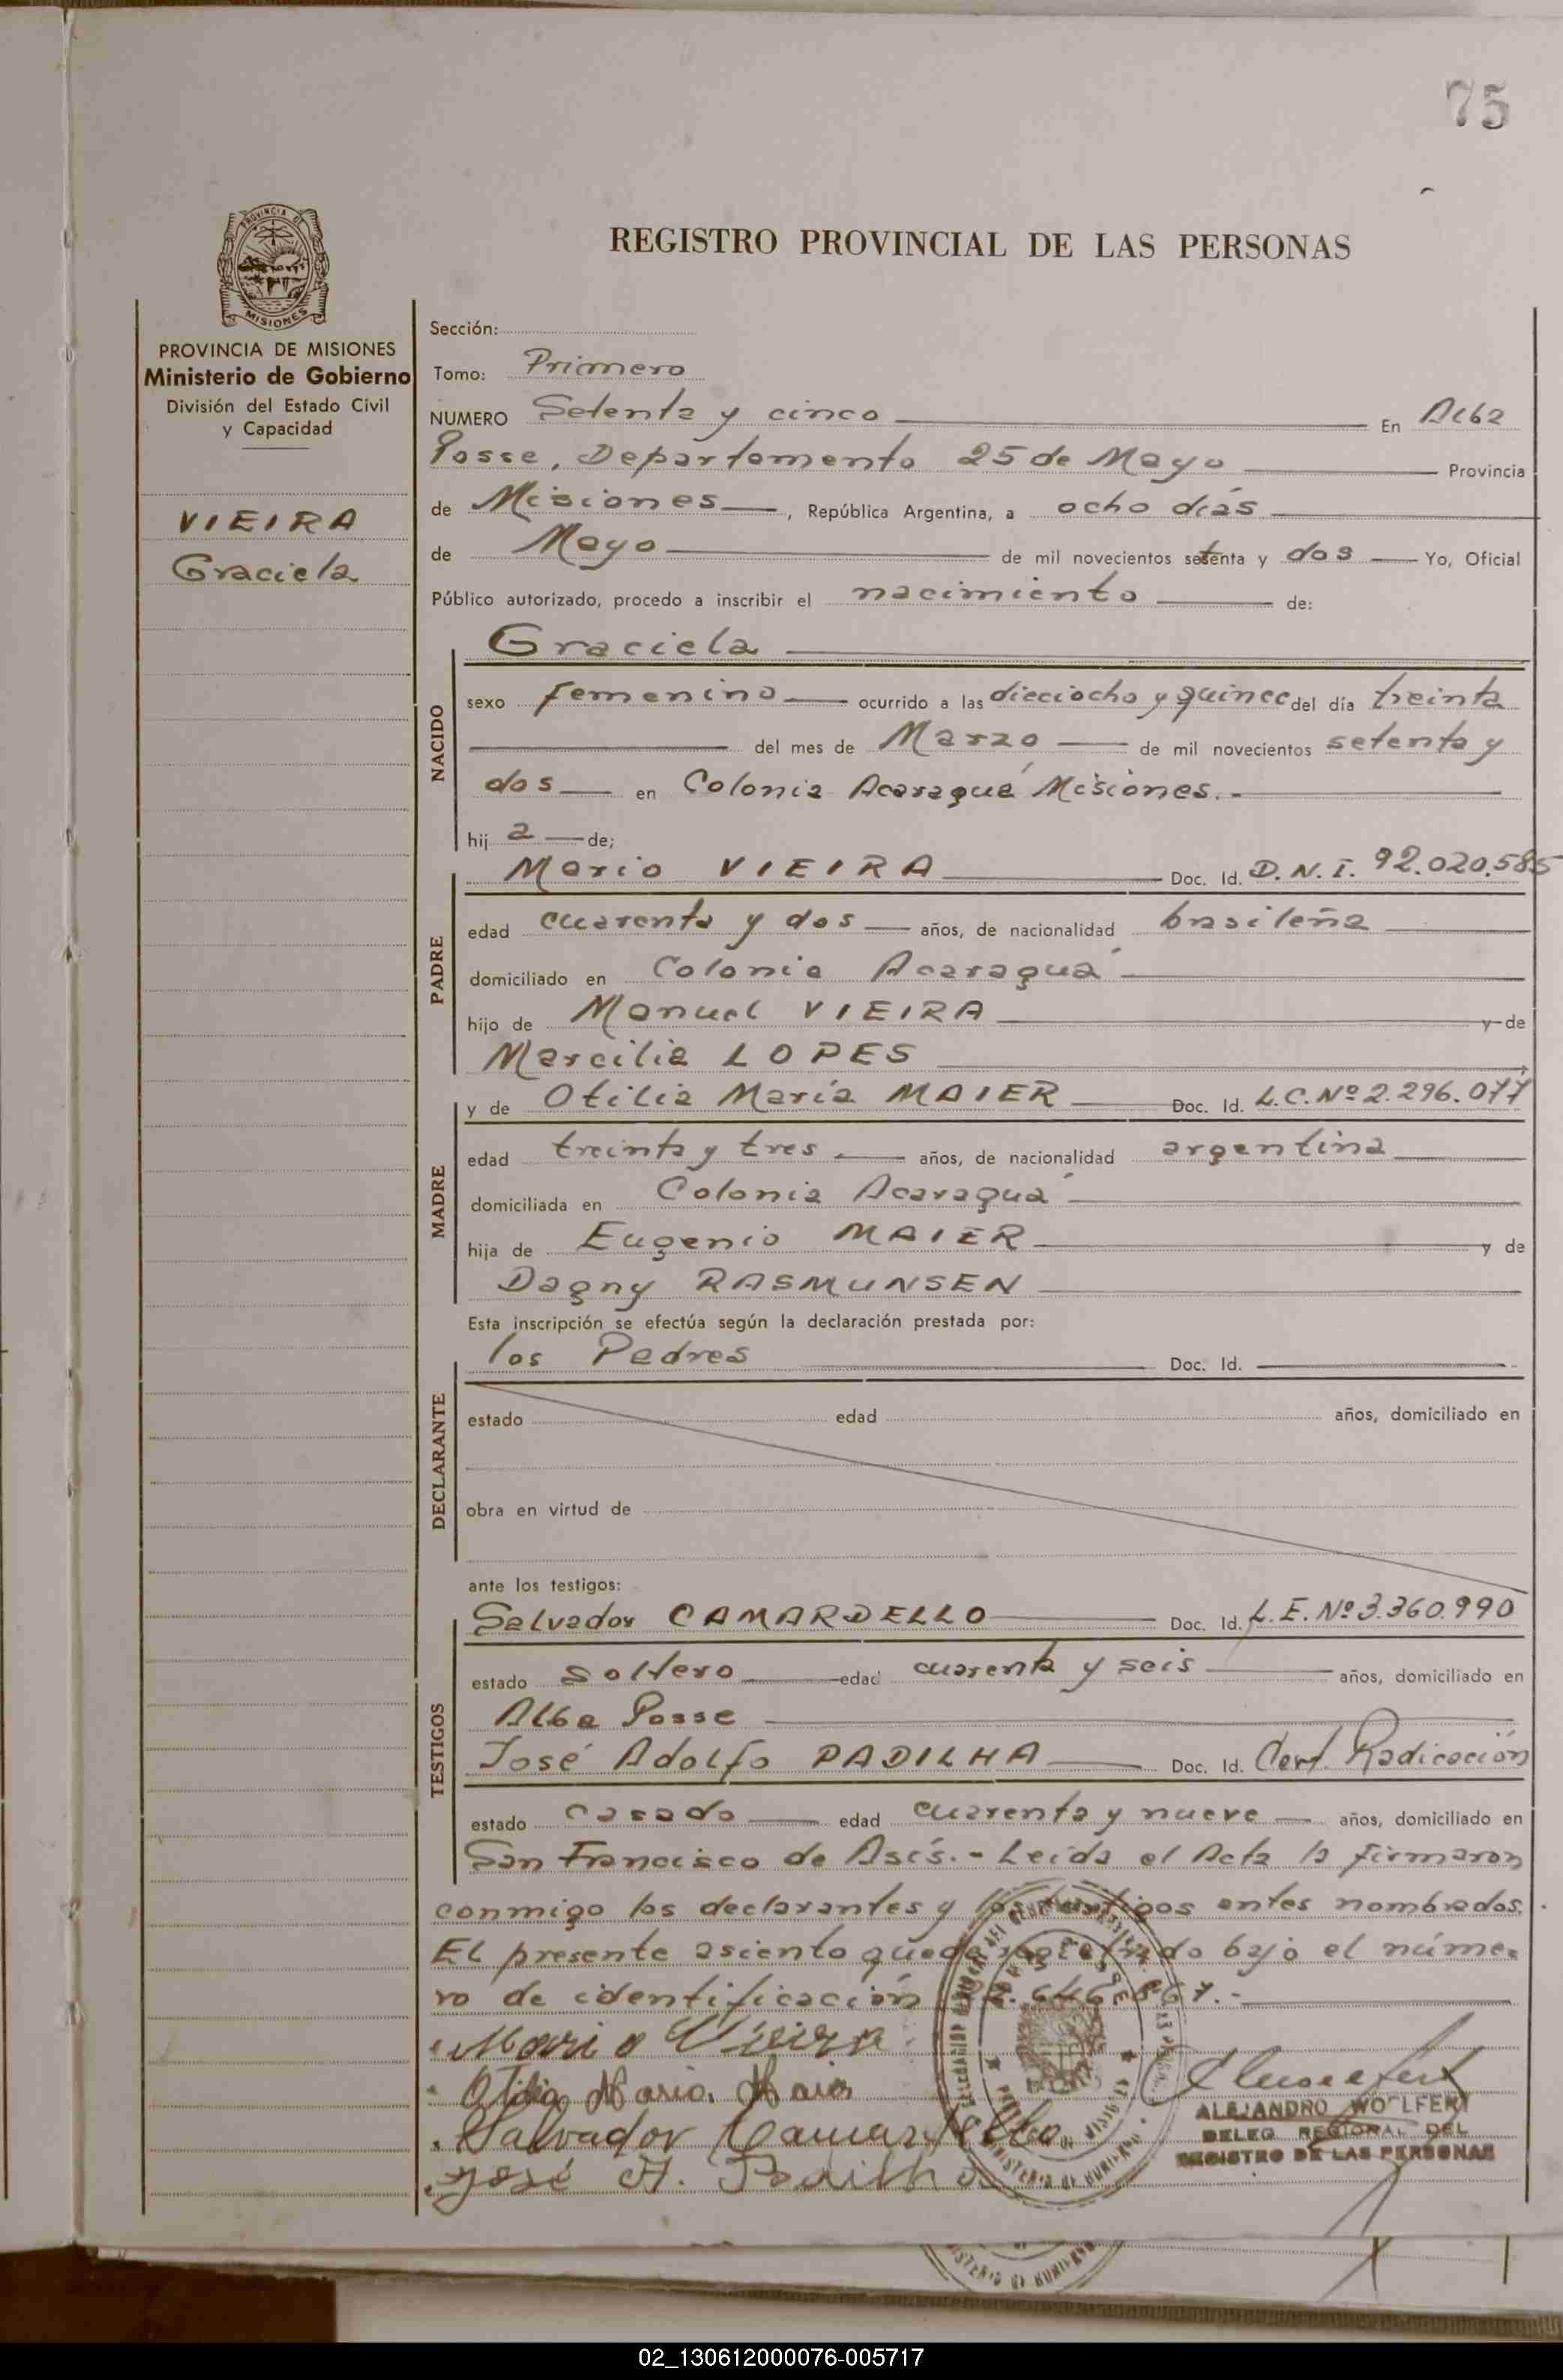 75
PROVINCIA DE
MISIONES
REGISTRO PROVINCIAL DE LAS PERSONAS
PROVINCIA DE MISIONES
Ministerio de Gobierno
División del Estado Civil
y Capacidad
VIEIRA
Graciela
Sección:
Tomo: Primero
NUMERO Setenta y cinco En Alba
Posse, Departamento 25 de Mayo Provincia
de Misiones, República Argentina, a ocho días
de Mayo de mil novecientos setenta y dos Yo, Oficial
Público autorizado, procedo a inscribir el nacimiento de:
NACIDO
Graciela
sexo femenino ocurrido a las dieciocho y quince del día treinta
del mes de Marzo de mil novecientos setenta y
dos en Colonia Acaraguá Misiones.-
hij a de;
PADRE
Mario VIEIRA Doc. Id. D.N.I. 92.020.585
edad cuarenta y dos años, de nacionalidad brasileña
domiciliado en Colonia Acaraguá
hijo de Manuel VIEIRA y de
Marcilia LOPES
MADRE
y de Otilia María MAIER Doc. Id. L.C. Nº 2.296.077
edad treinta y tres años, de nacionalidad argentina
domiciliada en Colonia Acaraguá
hija de Eugenio MAIER y de
Dagny RASMUNSEN
Esta inscripción se efectúa según la declaración prestada por:
DECLARANTE
los Padres Doc. Id.
estado edad años, domiciliado en
obra en virtud de
ante los testigos:
TESTIGOS
Salvador CAMARDELLO Doc. Id. L.E. Nº 3.360.990
estado soltero edad cuarenta y seis años, domiciliado en
Alba Posse
José Adolfo PADILHA Doc. Id. Cert. Radicación
estado casado edad cuarenta y nueve años, domiciliado en
San Francisco de Asís.- Leída el Acta la firmaron
conmigo los declarantes y los testigos antes nombrados.
El presente asiento queda registrado bajo el núme-
ro de identificación
Mario Vieira
Otilia Maria Maier
Salvador Camardello
José A. Padilha
ALEJANDRO WOLFERT
DELEG. REGIONAL DEL
REGISTRO DE LAS PERSONAS
02_130612000076-005717